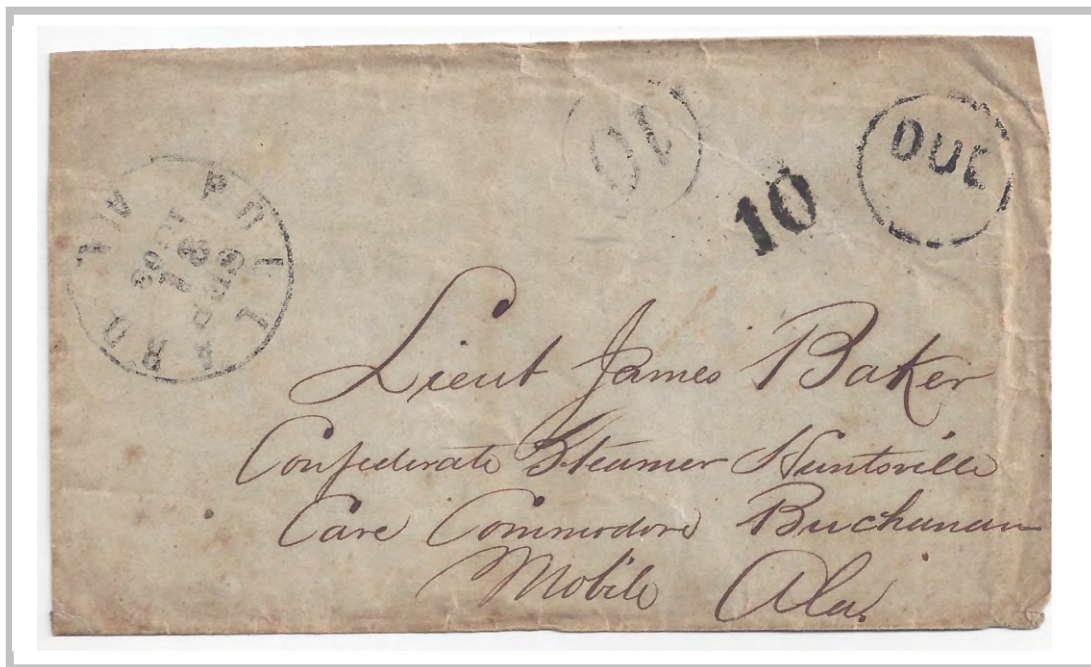 POLLARD ALA
10
10
DUE
Lieut James Baker
Confederate Steamer Huntsville
Care Commodore Buchanan
Mobile Ala.